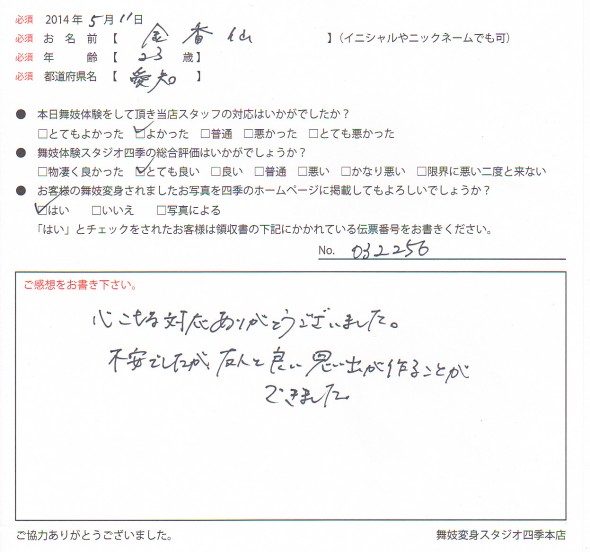 必須 2014年5月11日
必須 お名前【 金香仙 】(イニシャルやニックネームでも可)
必須 年齢【 23 歳】
必須 都道府県名【 愛知 】
● 本日舞妓体験をして頂き当店スタッフの対応はいかがでしたか?
□とてもよかった ☑よかった □普通 □悪かった □とても悪かった
● 舞妓体験スタジオ四季の総合評価はいかがでしょうか?
□物凄く良かった ☑とても良い □良い □普通 □悪い □かなり悪い □限界に悪い二度と来ない
● お客様の舞妓変身されましたお写真を四季のホームページに掲載してもよろしいでしょうか?
☑はい □いいえ □写真による
「はい」とチェックをされたお客様は領収書の下記にかかれている伝票番号をお書きください。
No. 032256
ご感想をお書き下さい。
心こもる対応ありがとうございました。
不安でしたが、友人と良い思い出が作ることが
できました
ご協力ありがとうございました。
舞妓変身スタジオ四季本店